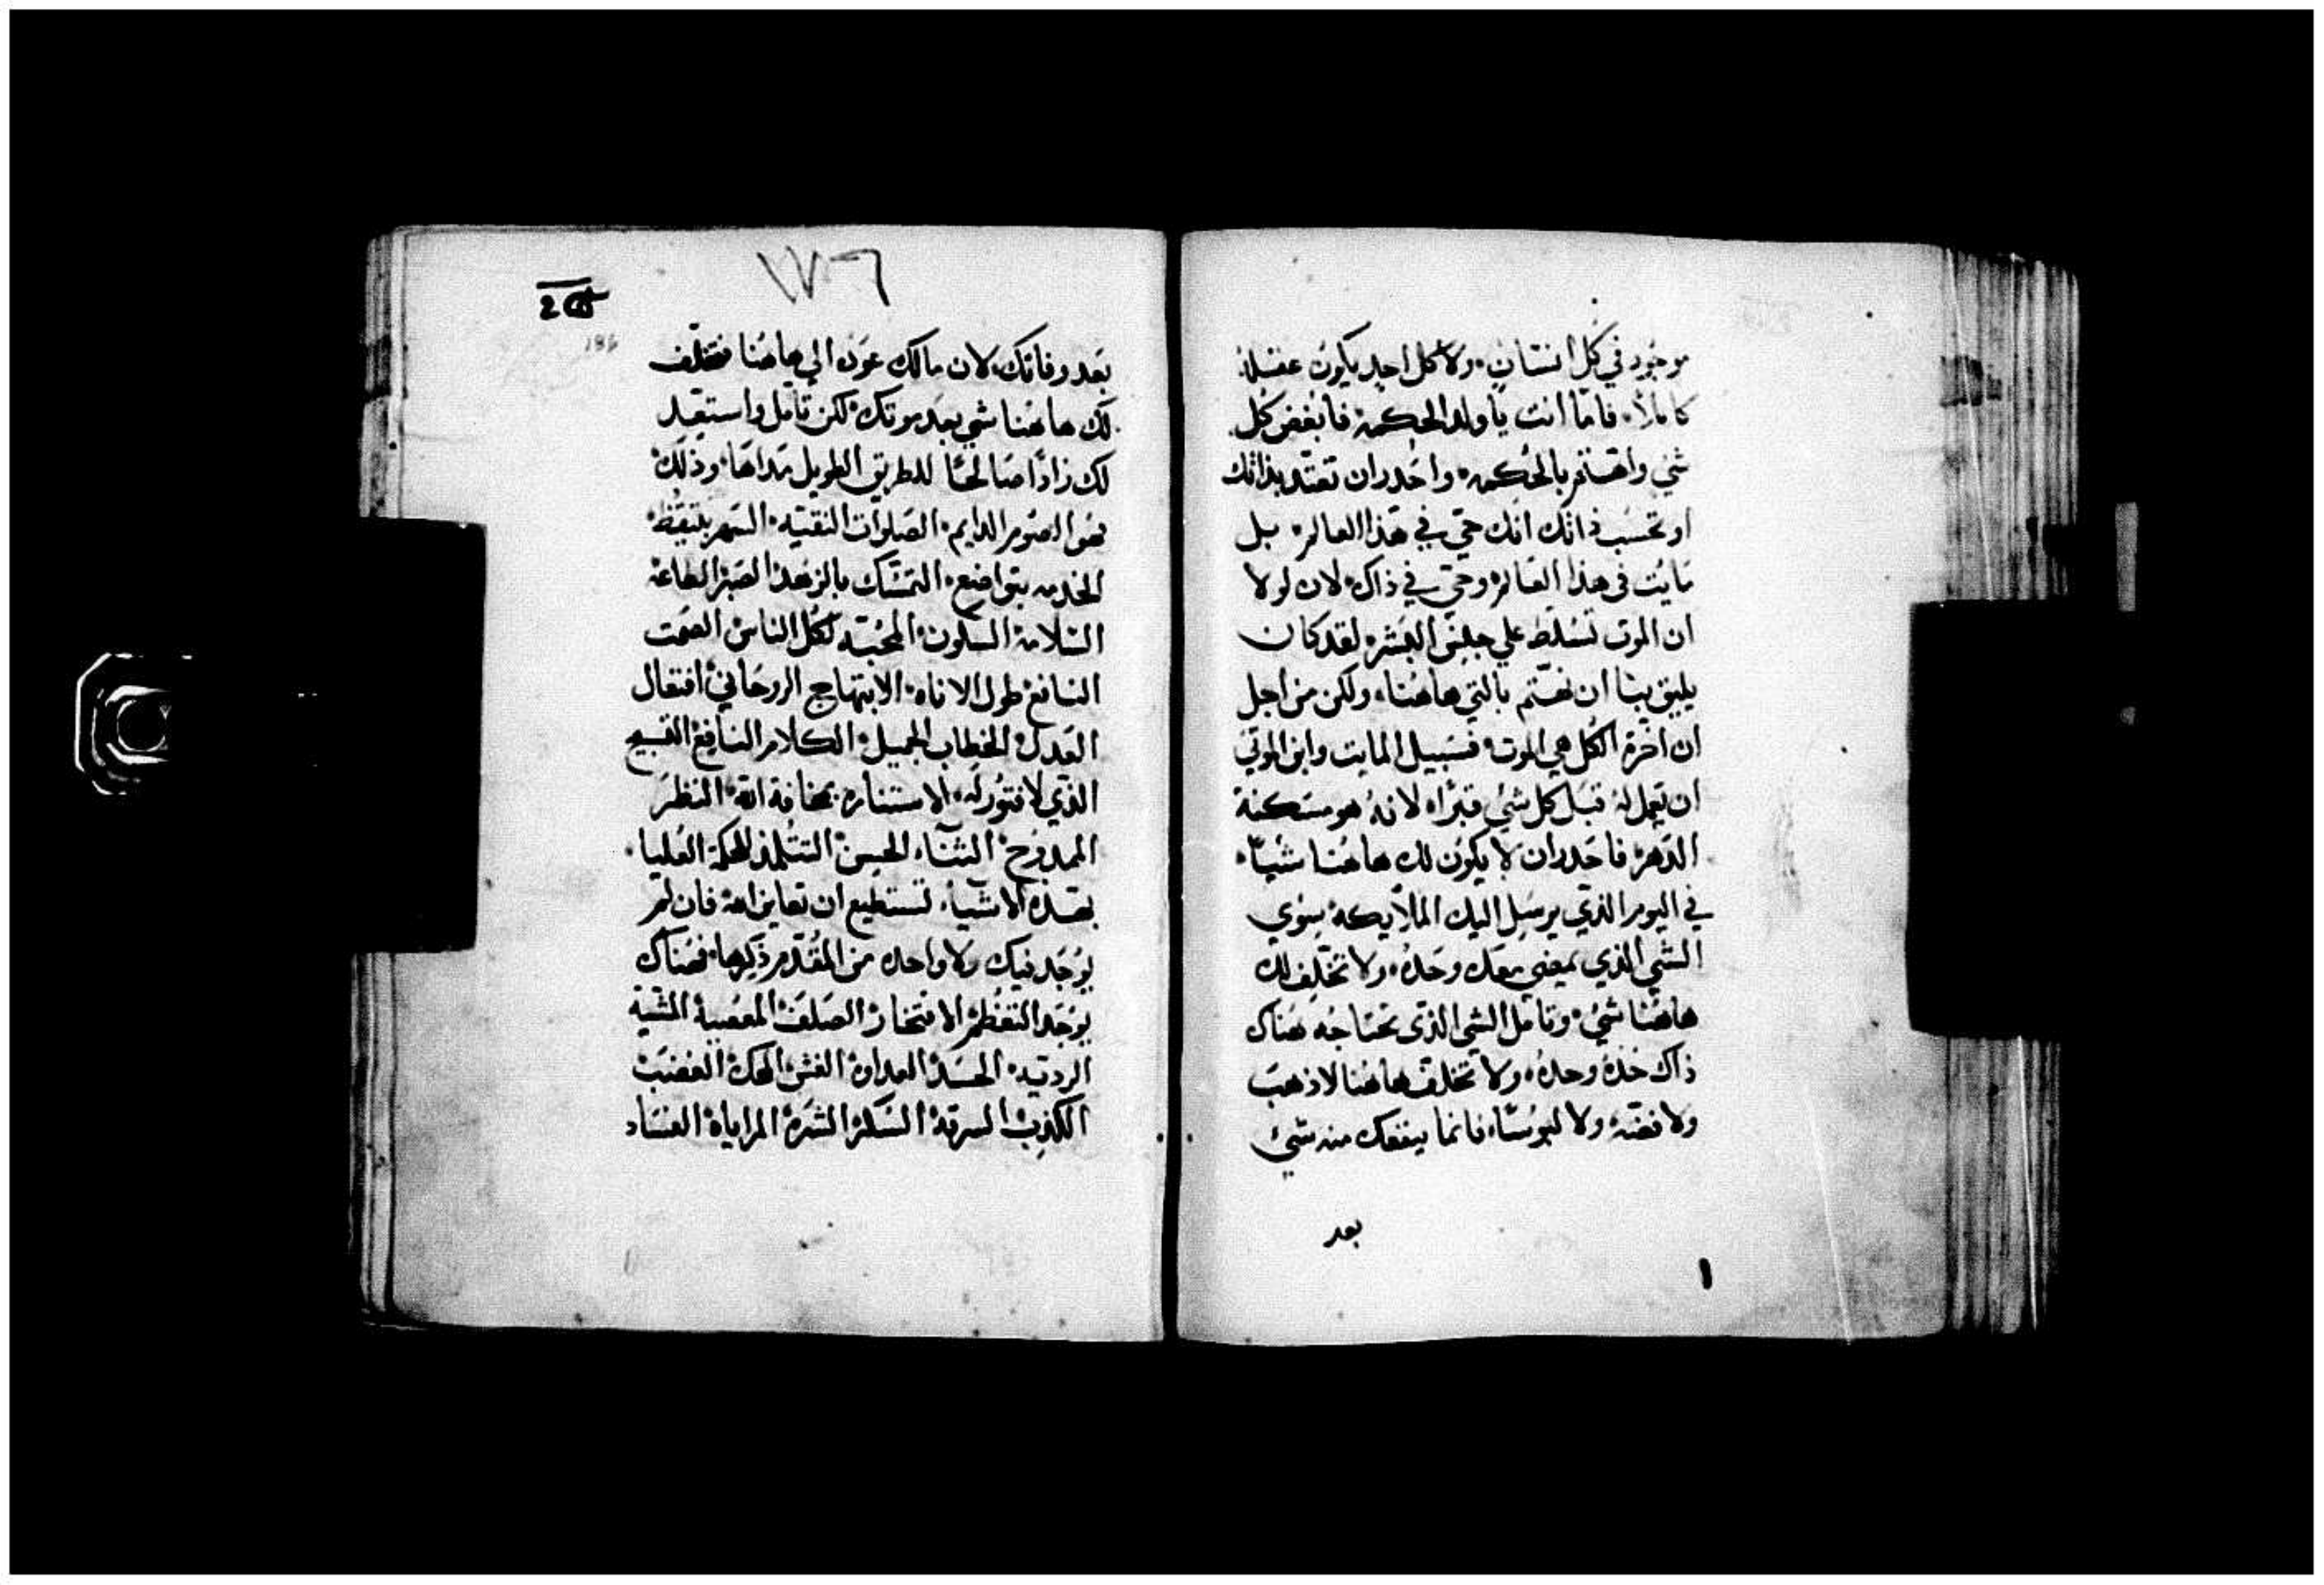 موجود في كل انسان ولا كل احد يكون عقله
كاملا فاما انت يا ولد الحكمه فابغض كل
شي واهتم بالحكمه واحدر ان تعتد بذاتك
او تحسب ذاتك انك حي في هذا العالم بل
مايت في هذا العالم وحي في ذاك لان لولا
ان الموت تسلط علي جنس البشر لقد كان
يليق بنا ان نهتم بالتي هاهنا ولكن من اجل
ان اخرة الكل هي الموت فسبيل المايت وابن الموتي
ان تعمل له قبل كل شي قبرا لانه هو مسكنه
الدهر فاحدر ان لا يكون لك هاهنا شيا
في اليوم الذي يرسل اليك الملايكه سوي
الشي الذي يمضي معك وحده ولا تخلف لك
هاهنا شي وتامل الشي الذي تحتاجه هناك
ذاك خده وحده ولا تخلف هاهنا لا ذهب
ولا فضه ولا لبوسا فانما ينفعك منه شي
بعد
١٧٦
186
بعد وفاتك لان مالك عوده الي هاهنا فتخلف
لك هاهنا شي بعد موتك لكن تامل واستعد
لك زادا صالحا للطريق الطويل مداها وذلك
هو الصوم الدايم الصلوات النقيه السهر بتيقظ
الخدمه بتواضع التمسك بالزهد الصبر الطاعه
السلامه السكون المحبه لكل الناس الصمت
النافع طول الاناه الابتهاج الروحاني افتعال
العدل الخطاب الجميل الكلام النافع التسبيح
الذي لا فتور له الاستناره بمخافة الله النظر
الممدوح الثناء الحسن التتلمذ للحكمة العليا
بهذه الاشياء تستطيع ان تعاين الله فان لم
يوجد فيك ولا واحده من المقدم ذكرها فهناك
يوجد التعظم الافتخار الصلف المعصية المشية
الرديه الحسد العداوه الغش الحقد الغضب
الكذب السرقة السكر الشره المراياه الفساد